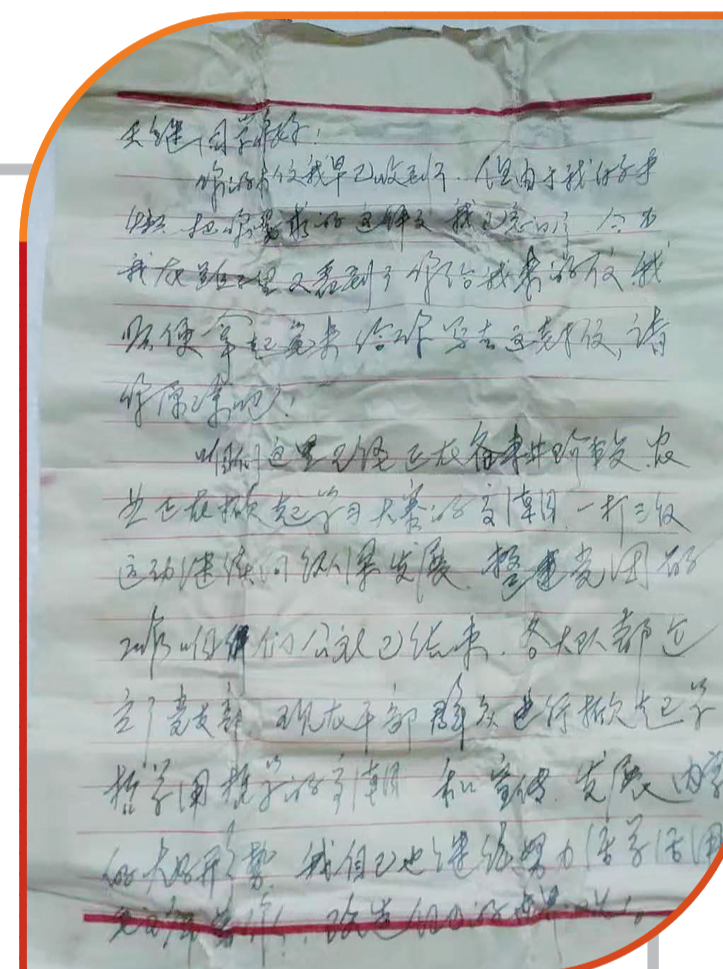 天继同学你好！
你的来信我早已收到了。但由于我的
把你要求的这件文我已忘记了，今天
我在 里又看到了你给我来的信，我
顺便拿起笔来给你写去这封信，请
你原谅吧！
咱们这里已经正在 阶段，农
业正在掀起学习大寨的高潮，一打三反
运动继续向纵深发展，整建党团的
工作咱们公社已结束，各大队都建
立了党支部，现在干部群众进行掀起学
哲学用哲学的高潮和宣传发展内蒙
的大好形势，我自己也继续努力活学活用
毛主席著作，改造自己的世界观。